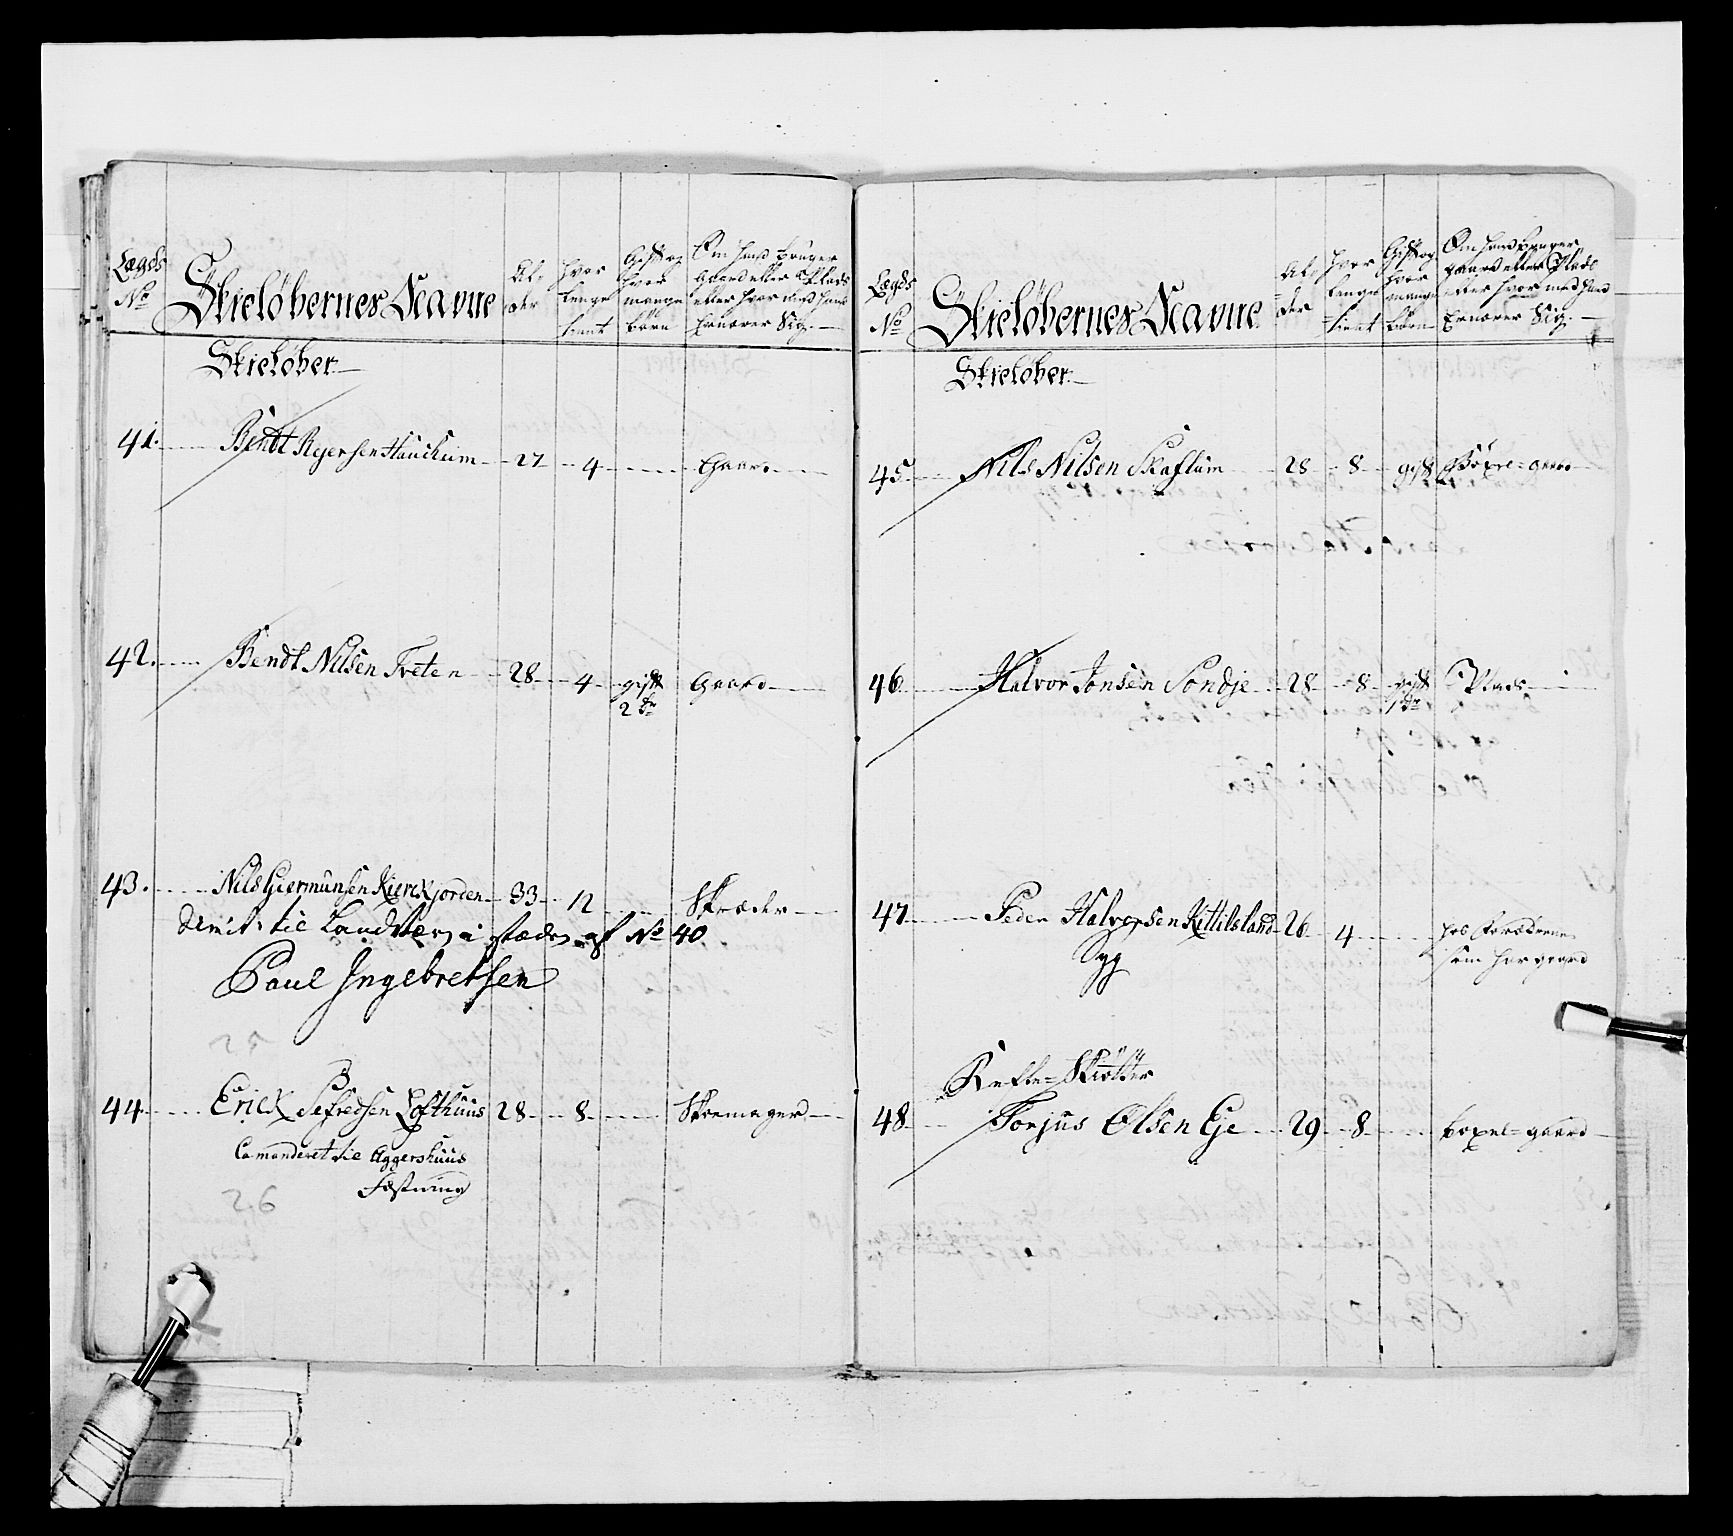 Lægds No Skieløbernes Navne Al- der hvor lenge tient Gift og hvor mange børn Om hand bruger gaard eller Plads eller hvor med hand Ernærer Sig.
Skieløber
41. Bendt Rejersen Hauckum 27 4 Gaard
42. Bendt Nilsen Treten 28 4 gift Gaard
2 Br
43. Nils Giermunsen Kierckjorden 33 12 Skræder
Dimit: til Landvern i stæden af No 40
Paul Ingebretsen
25
44 Erick Sefredsen Lofthuus 28 8 Skoemager
Comanderet til Aggershuus
Fæstning
26
Lægds No Skieløbernes Navne Al- der hvor lenge tient Gift og hvor mange børn Om hand bruger gaard eller Plads eller hvor med hand Ernærer Sig.
Skieløber
45. Nils Nilsen Skaflum 28 8 gift gaard
46 Halvor Jonsen Sondje 28 8 gift Plads
1 Br
47 Peder Halvorsen Kittilsland 26 4 hos Forældrene
Syg som har gaard
Rifle-Skøtter
48 Torjus Olsen Eje 29 8 gaard